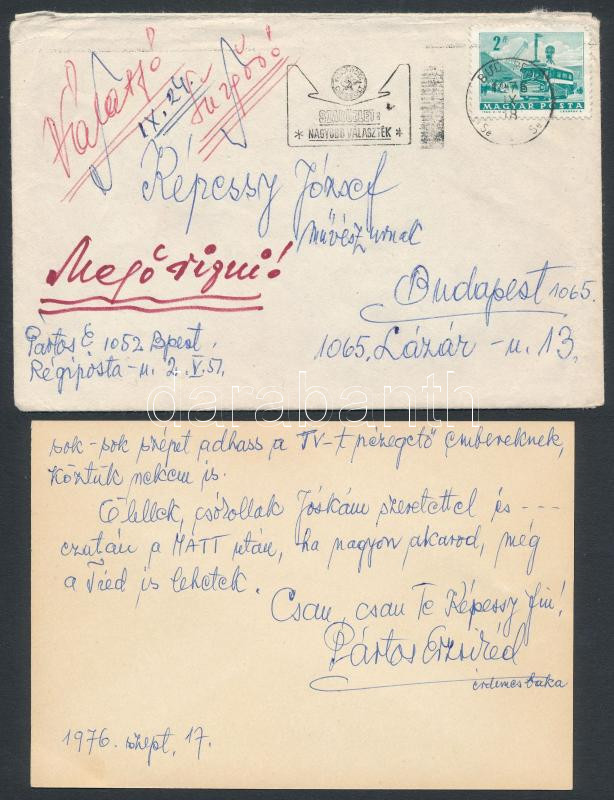 Válasz
IX. 24.
SZAKÜZLET:
* NAGYOBB VÁLASZTÉK *
2 Ft
MAGYAR POSTA
BUDAPEST
18
Képessy József
művész urnak
Megőrizni!
Budapest 1065.
1065. Lázár-u. 13.
Pártos E. 1052 Bpest.
Régiposta-u. 2. V. 51.
darabanth
sok-sok szépet adhass a TV-t nézegető embereknek,
köztük nekem is.
Ölellek, csókollak Jóskám szeretettel és ---
ezután a MATT után, ha nagyon akarod, még
a Tied is lehetek.
Csau, csau Te Képessy fiu!
Pártos Erzsi
érdemes
1976. szept. 17.